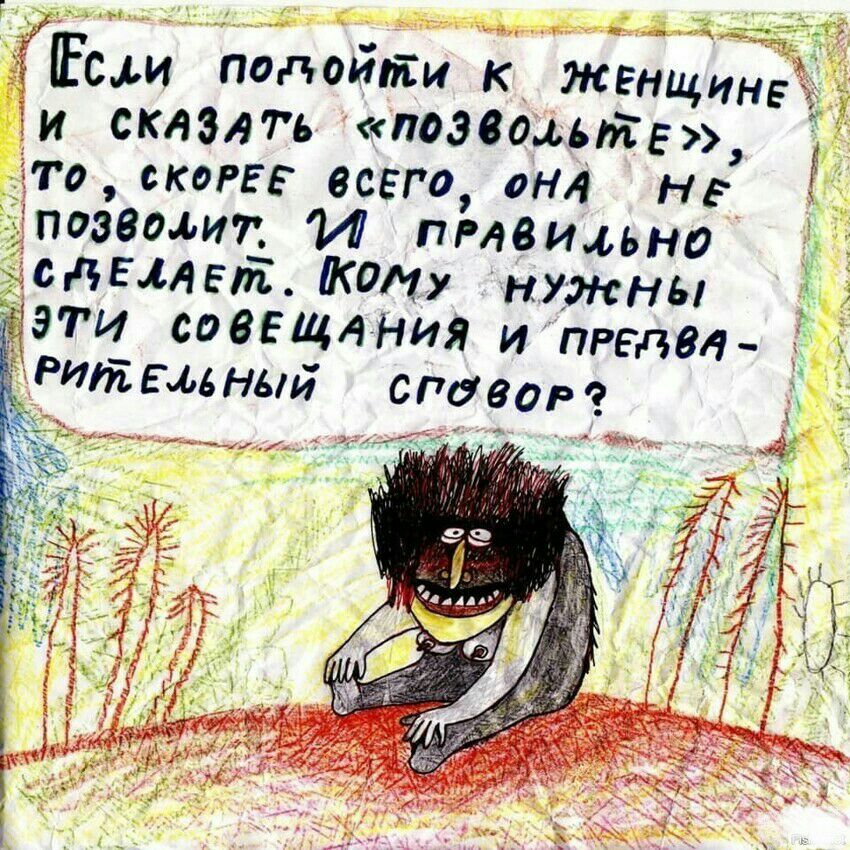 Если подойти к женщине
и сказать «позвольте»,
то, скорее всего, она не
позволит. И правильно
сделает. Кому нужны
эти совещания и предва-
рительный сговор?